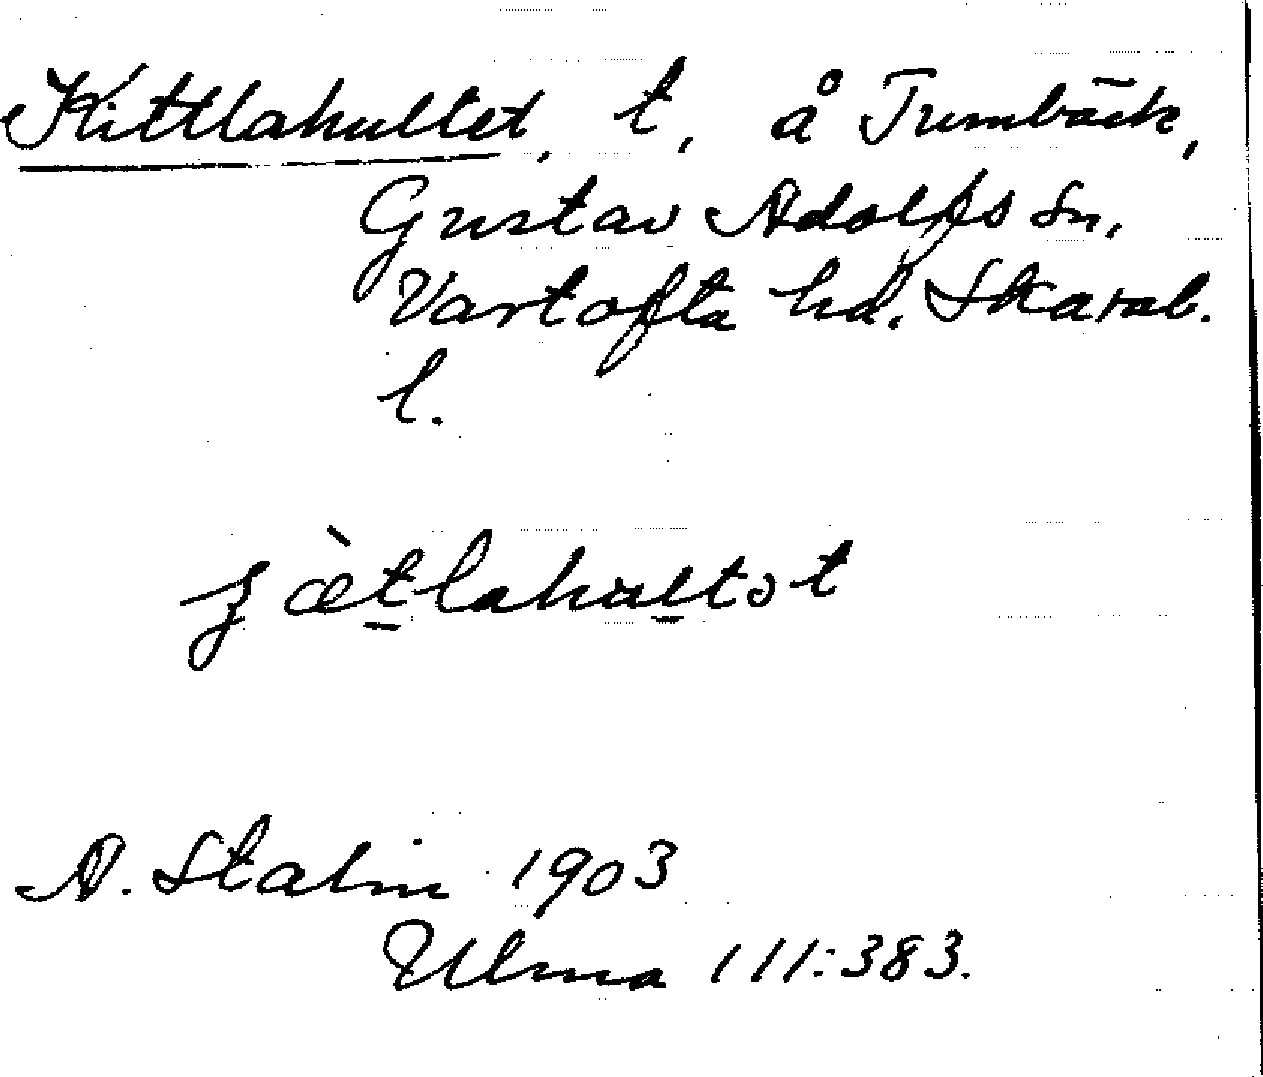 Kittlahultet, t, å Trumbäck,
Gustav Adolfs sn,
Vartofta hd. Skarab.
l.
A. Stalin 1903
Ulma 111:383.